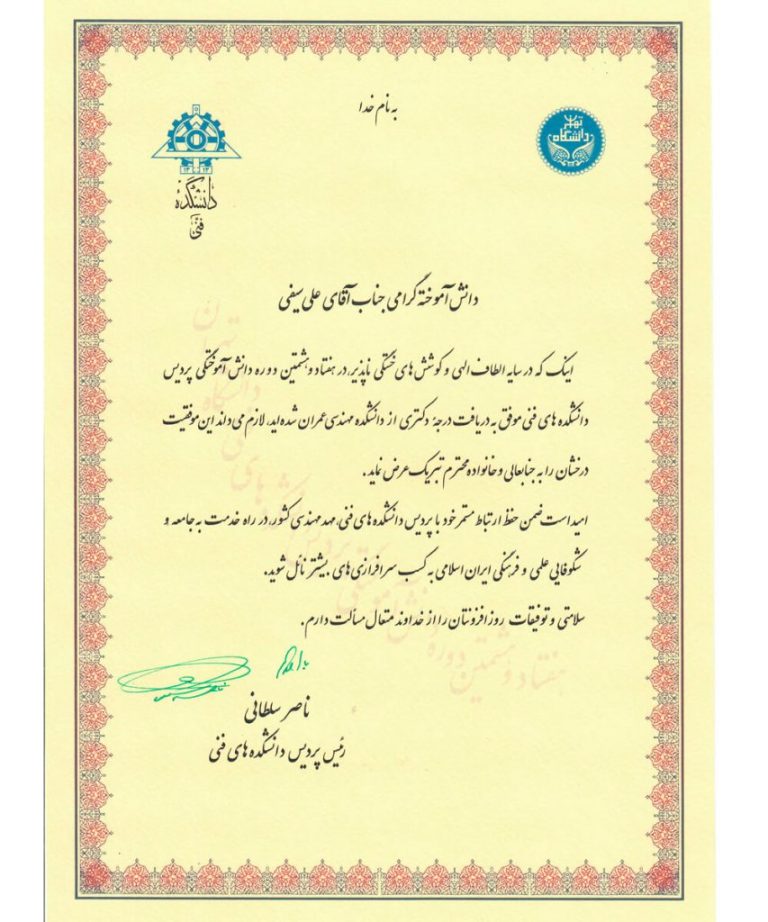 به نام خدا
تهران
دانشگاه
۱۳۱۳
دانشکدهٔ
فنی
دانش آموختهٔ گرامی جناب آقای علی سیفی
اینک که در سایه الطاف الهی و کوشش های خستگی ناپذیر، در هفتاد و هشتمین دوره دانش آموختگی پردیس
دانشکده های فنی موفق به دریافت درجهٔ دکتری از دانشکده مهندسی عمران شده اید، لازم می داند این موفقیت
درخشان را به جنابعالی و خانواده محترم تبریک عرض نماید.
امید است ضمن حفظ ارتباط مستمر خود با پردیس دانشکده های فنی، مهد مهندسی کشور، در راه خدمت به جامعه و
شکوفایی علمی و فرهنگی ایران اسلامی به کسب سرافرازی های بیشتر نائل شوید.
سلامتی و توفیقات روزافزونتان را از خداوند متعال مسألت دارم.
هفتاد و هشتمین دوره
ناصر سلطانی
رئیس پردیس دانشکده های فنی